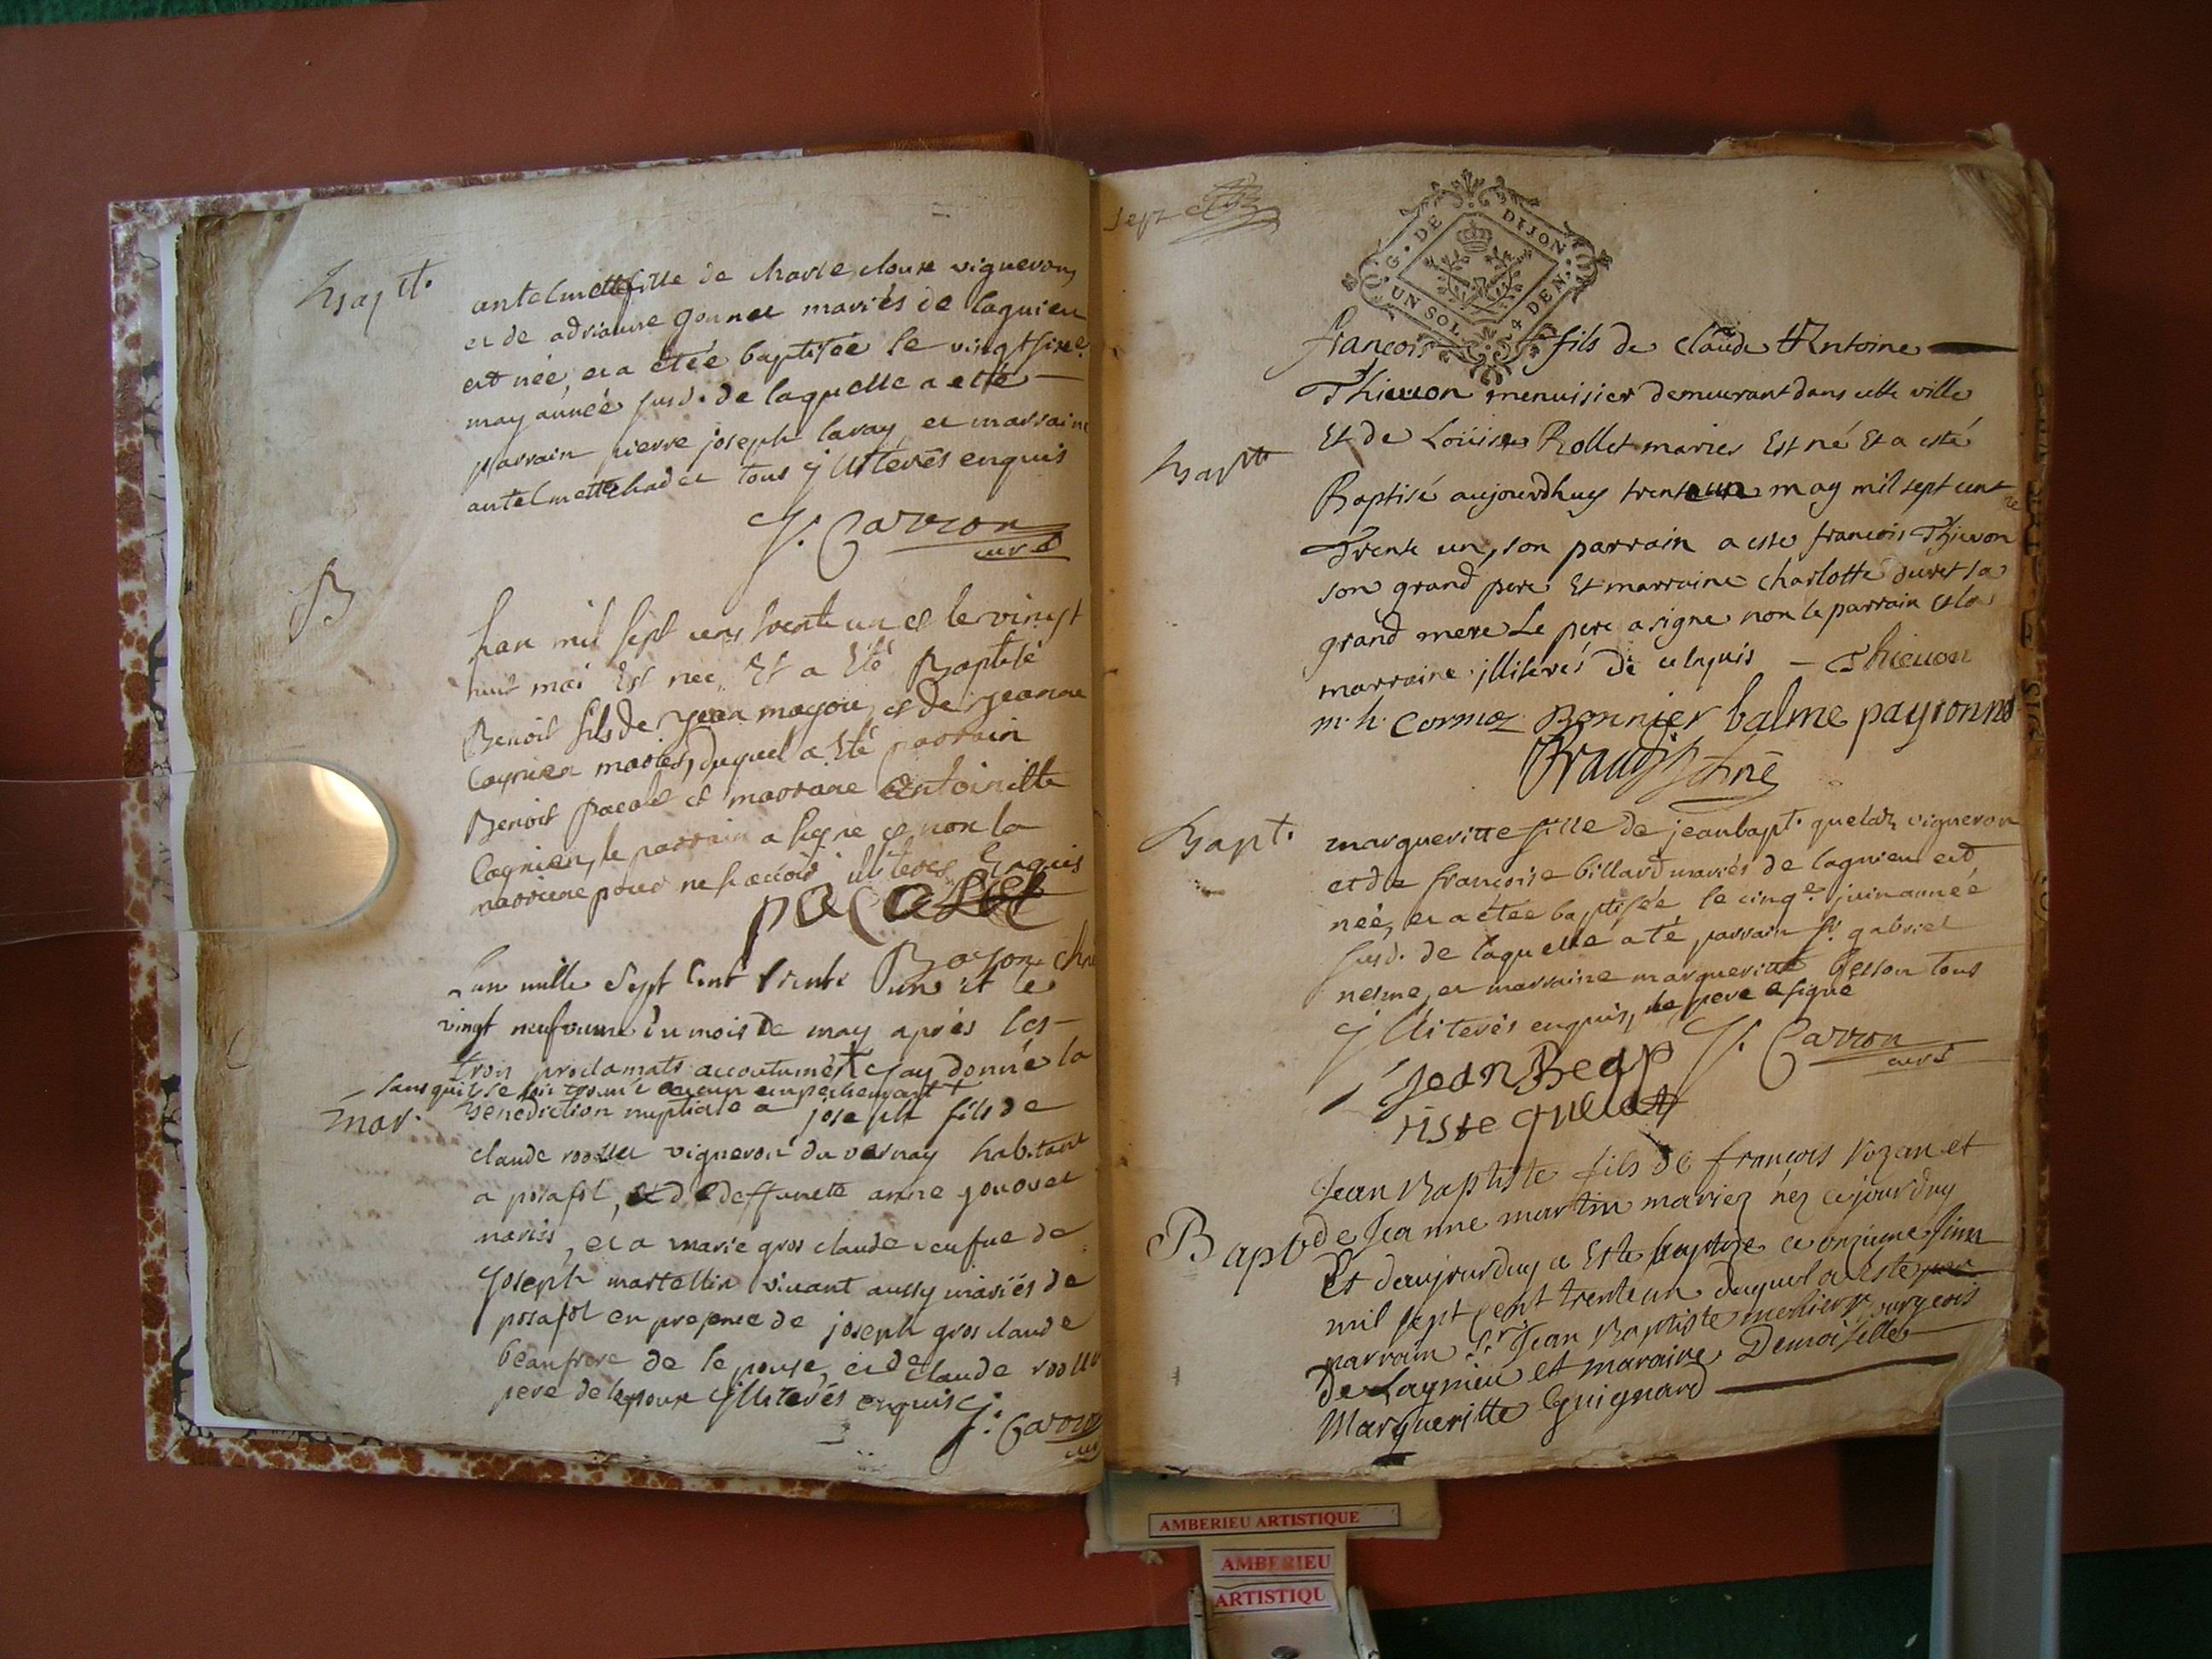 Bapt.
antelmette fille de charle clouse vigneron
et de adrianne gonnet mariés de lagnieu
est née, et a étée baptisée le vingt sixe.
may année susd. de laquelle a etté
parrain pierre joseph lavay et marraine
antelmette chadet tous illiterés enquis
J. Carron
curé
B
Lan mil sept cens trente un et le vingt
huit mai Est née Et a Eté Baptisé
Benoit fils de jean mayou, et de jeanne
Cagnien mariés, duquel a Eté parrain
Benoit pacalet et marraine Antoinette
Cagnien, le parrain a signé et non la
marraine pour ne sçavoir illiteres Enquis
pacalet
Boson
Lan mille Sept Cent trente un et le
vingt neufvieme du mois de may après les
trois proclamats accoutumés jay donné la
sans quil se soit trouvé aucun empechement
mar.
benediction nuptiale a joseph fils de
claude vigneron du vernay habitant
a posafol, et de deffuncte anne
mariés, et a marie gros claude veufue de
joseph martellin vivant aussy mariés de
posafol en presence de joseph gros claude
beaufrere de lepouse, et de claude
pere de lepoux illiterés enquis
J. Carron
curé
Sept
G. DE DIJON
UN SOL 4 DEN.
françois fils de claude Antoine
Thieuon menuisier demeurant dans cette ville
Bapt
Et de Loüise Rollet maries Est né Et a esté
Baptisé aujourdhuy trente un may mil sept cent
Trente un, son parrain a esté françois Thieuon
son grand pere Et marraine charlotte duret sa
grand mere Le pere a signe non le parrain et la
marraine illiterés de ce enquis – Thieuon
m. h. Cormoz Bonnier balme payronne
Bapt.
margueritte fille de jean bapt. quelat vigneron
et de françoise billard mariés de lagnieu est
née, et a étée baptisée le cinqe. juin année
susd. de laquelle a té parrain sr. gabriel
nesme, et marraine margueritte besson tous
illiterés enquis, le pere a signé
J. Carron
curé
Jean Beap
tiste quelat
Jean Baptiste fils de françois Rozan et
Bapt
de Jeanne martin mariez néz ce jourduy
Et daujourduy a Esté baptize ce onzieme Juin
mil sept cent trente un duquel a Esté
parrain Sr. Jean Baptiste merlier
De Lagnieu et maraine Demoiselle
Margueritte Guignard
AMBERIEU ARTISTIQUE
AMBERIEU
ARTISTIQU